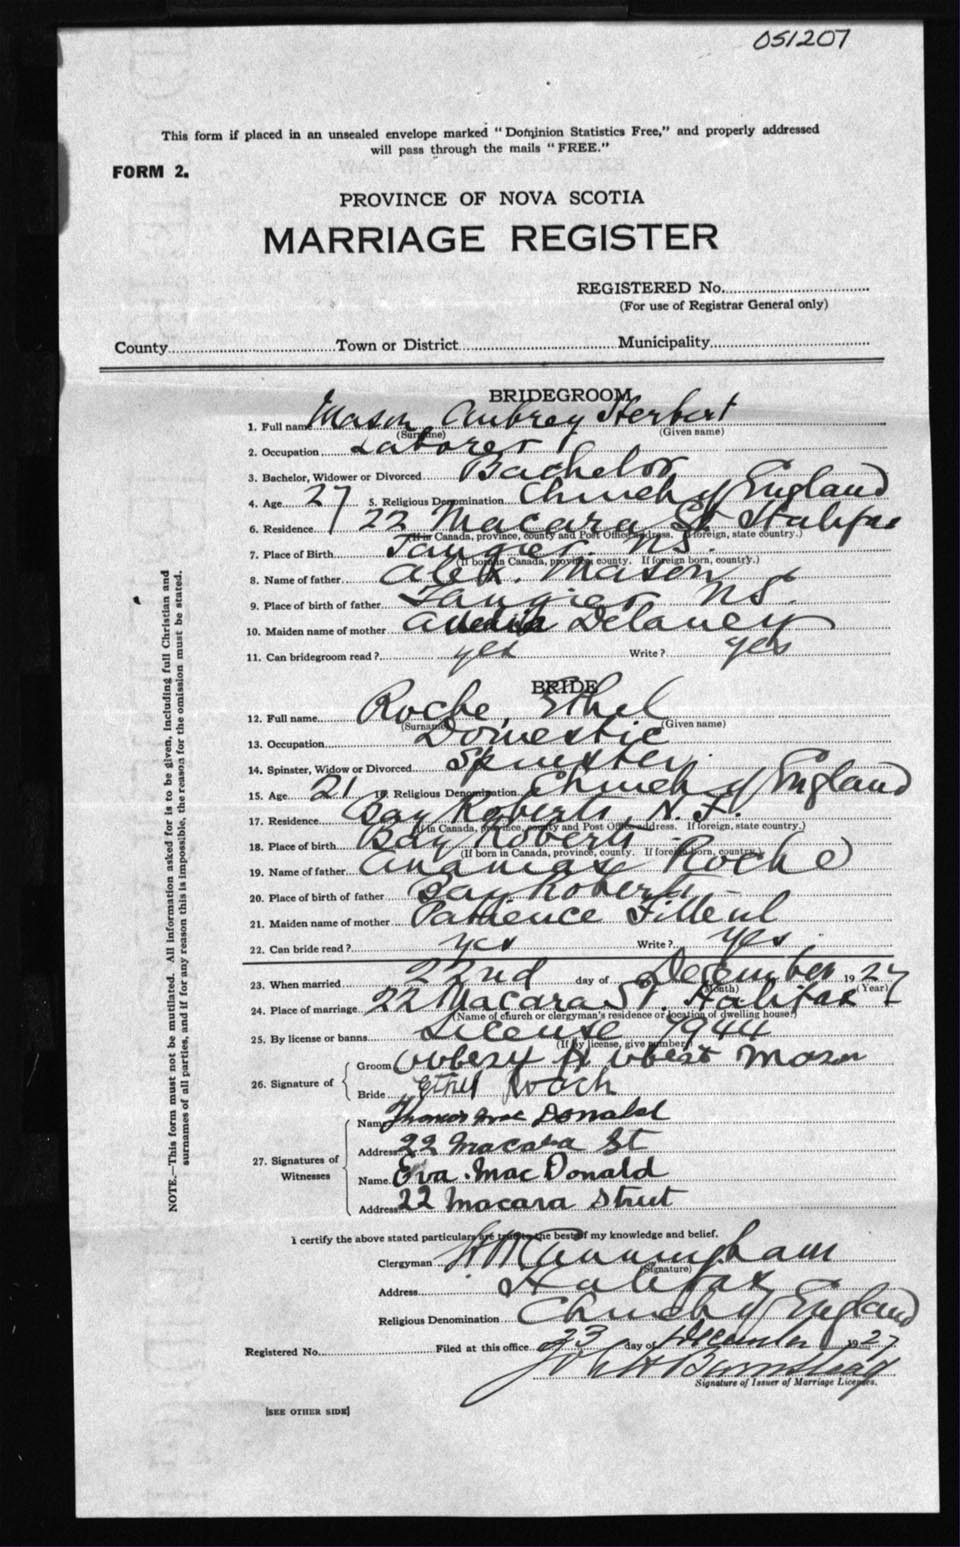 051207
This form if placed in an unsealed envelope marked "Dominion Statistics Free," and properly addressed
will pass through the mails "FREE."
FORM 2.
PROVINCE OF NOVA SCOTIA
MARRIAGE REGISTER
REGISTERED No.
(For use of Registrar General only)
County Town or District Municipality
BRIDEGROOM
1. Full name Mason Aubrey Herbert
(Surname) (Given name)
2. Occupation Laborer
3. Bachelor, Widower or Divorced Bachelor
4. Age 27 5. Religious Denomination Church of England
6. Residence 22 Macara St Halifax
(If in Canada, province, county and Post Office address. If foreign, state country.)
7. Place of Birth Tangier NS.
(If born in Canada, province, county. If foreign born, country.)
8. Name of father Alex. Mason
9. Place of birth of father Tangier NS.
10. Maiden name of mother Delaney
11. Can bridegroom read? yes Write? yes
BRIDE
12. Full name Roche, Ethel
(Surname) (Given name)
13. Occupation Domestic
14. Spinster, Widow or Divorced Spinster
15. Age 21 16. Religious Denomination Church of England
17. Residence Bay Roberts, N.F.
(If in Canada, province, county and Post Office address. If foreign, state country.)
18. Place of birth Bay Roberts
(If born in Canada, province, county. If foreign born, country.)
19. Name of father Ananias Roche
20. Place of birth of father Bay Roberts -
21. Maiden name of mother Patience Filleul
22. Can bride read? yes Write? yes
23. When married 22nd day of December 1927
(Month) (Year)
24. Place of marriage 22 Macara St. Halifax
(Name of church or clergyman's residence or location of dwelling house)
25. By license or banns License 7944
(If by license, give number)
26. Signature of Groom Mason
Bride Ethel Roach
27. Signatures of Witnesses Name MacDonald
Address 22 Macara St
Name Eva MacDonald
Address 22 Macara Street
I certify the above stated particulars are true to the best of my knowledge and belief.
Clergyman Cunningham
(Signature)
Address Halifax
Religious Denomination Church of England
Registered No. Filed at this office 23 day of December 1927
Signature of Issuer of Marriage Licenses.
[SEE OTHER SIDE]
NOTE.—This form must not be mutilated. All information asked for is to be given, including full Christian and
surnames of all parties, and if for any reason this is impossible, the reason for the omission must be stated.